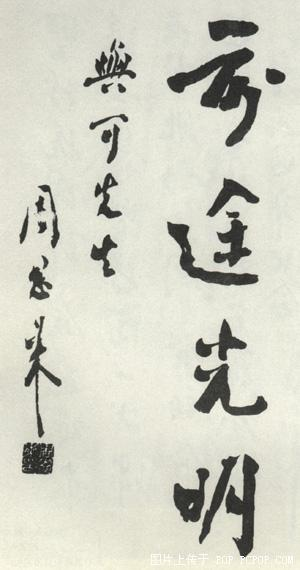 前途光明
與可先生
周恩来
图片上传于 POP.PCPOP.COM